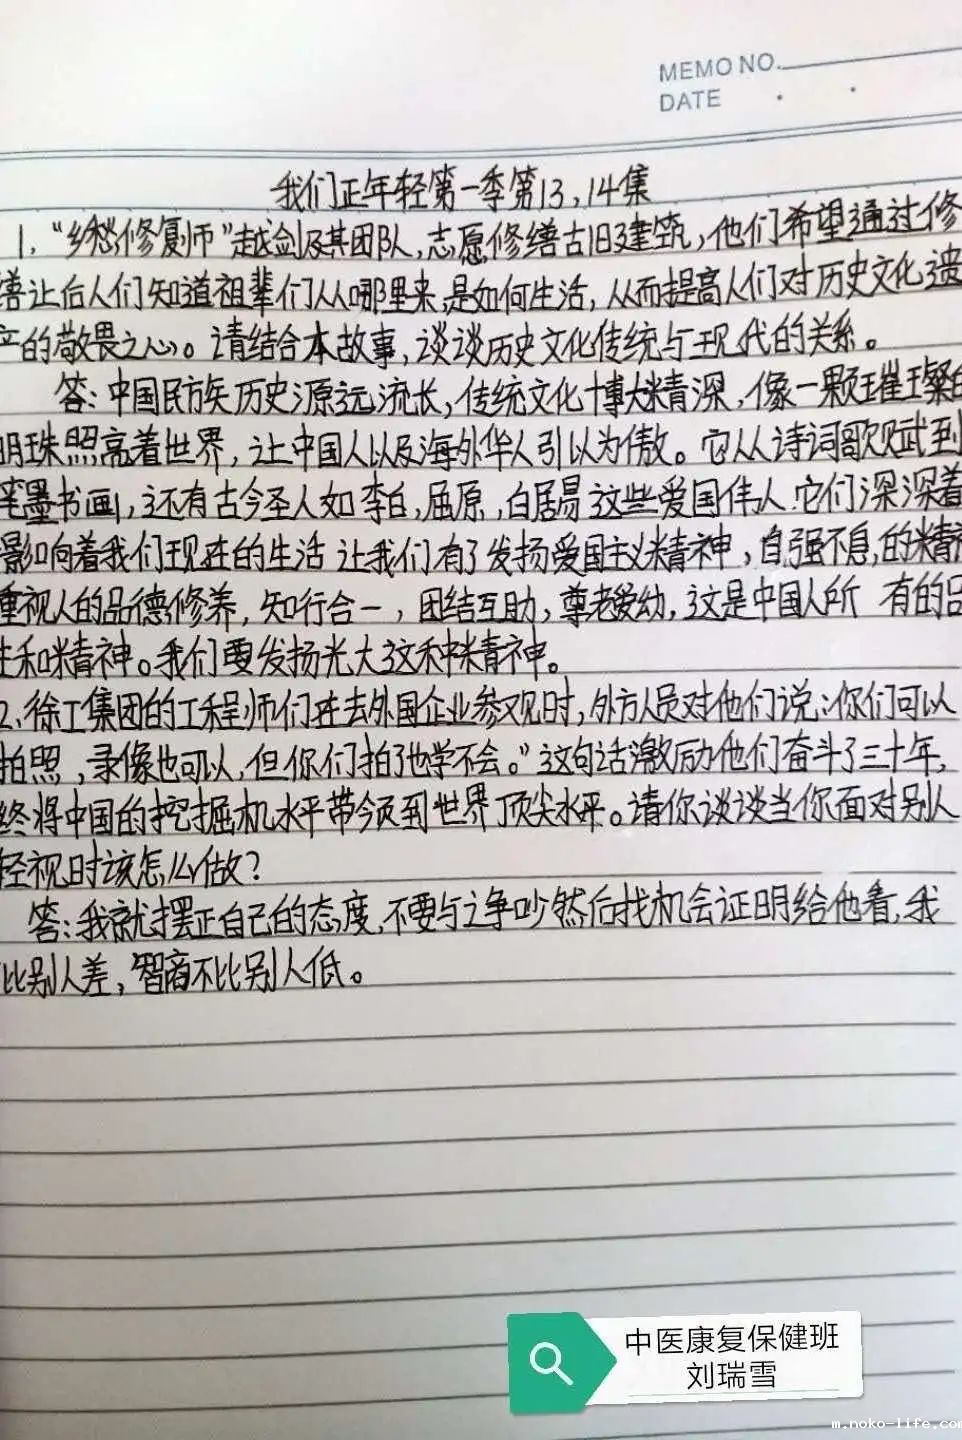 MEMO NO.
DATE
我们正年轻第一季第13,14集
1,“乡愁修复师”赵剑及其团队,志愿修缮古旧建筑,他们希望通过修
缮让后人们知道祖辈们从哪里来,是如何生活,从而提高人们对历史文化遗
产的敬畏之心。请结合本故事,谈谈历史文化传统与现代的关系。
答:中国民族历史源远流长,传统文化博大精深,像一颗璀璨的
明珠照亮着世界,让中国人以及海外华人引以为傲。它从诗词歌赋到
笔墨书画,还有古今圣人如李白,屈原,白居易这些爱国伟人.它们深深着
影响着我们现在的生活 让我们有了发扬爱国主义精神,自强不息,的精神
重视人的品德修养,知行合一,团结互助,尊老爱幼,这是中国人所 有的品
性和精神。我们要发扬光大这种精神。
2.徐工集团的工程师们在去外国企业参观时,外方人员对他们说:你们可以
拍照,录像也可以,但你们拍了也学不会。”这句话激励他们奋斗了三十年,
终将中国的挖掘机水平带领到世界顶尖水平。请你谈谈当你面对别人
轻视时该怎么做?
答:我就摆正自己的态度,不要与之争吵然后找机会证明给他看,我
比别人差,智商不比别人低。
中医康复保健班
刘瑞雪
m.noko-life.com